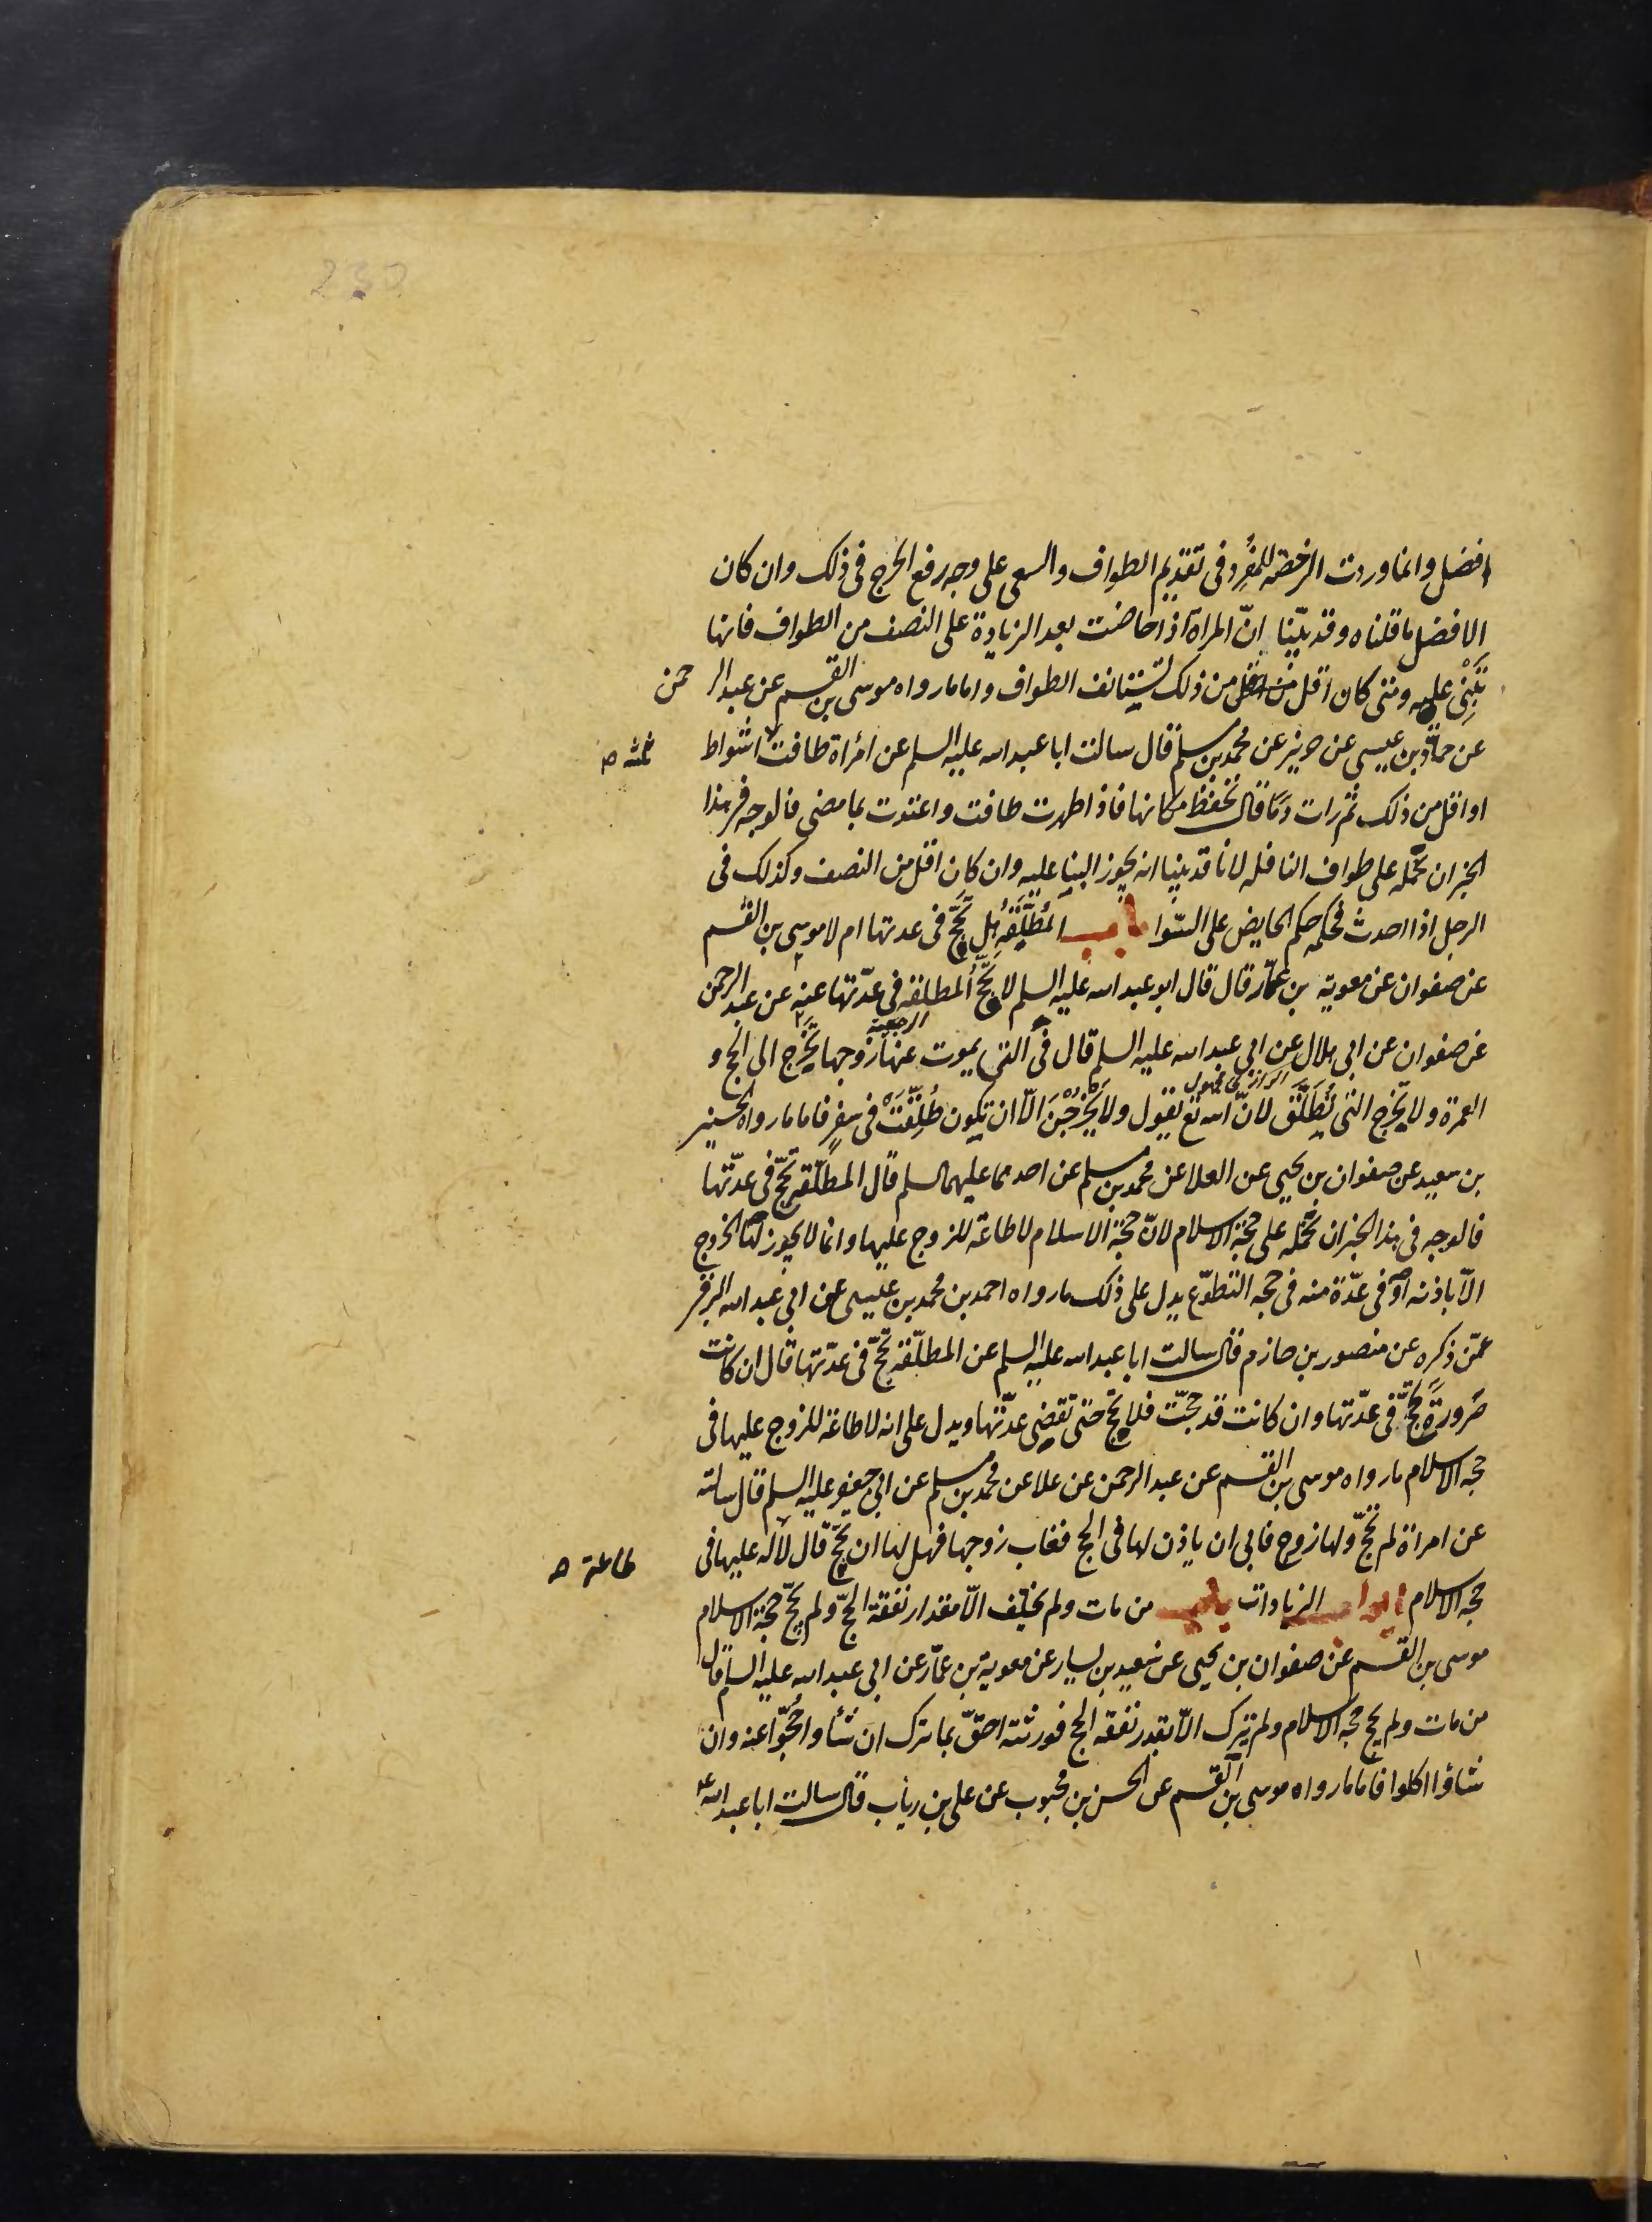 230
افضل وانما وردت الرخصة للمفرد فى تقديم الطواف والسعى على وجه رفع الحرج فى ذلك وان كان
الافضل ما قلناه وقد بيّنا انّ المراة اذا حاضت بعد الزيادة على النصف من الطواف فانها
تبنى عليه ومتى كان اقل من ذلك تستانف الطواف واما ما رواه موسى بن القسم عن عبد الرحمن
عن حمّاد بن عيسى عن حريز عن محمد بن مسلم قال سالت ابا عبد الله عليه السلم عن امراة طافت اشواط
ثلثة ص
او اقل من ذلك ثم رات دما قال تحفظ مكانها فاذا طهرت طافت واعتدت بما مضى فالوجه فى هذا
الخبر ان نحمله على طواف النافله لانا قد بينا انه يجوز البنا عليه وان كان اقل من النصف وكذلك فى
الرجل اذا احدث فحكمه حكم الحايض على السّوا باب المُطَلَّقَةِ هل تحجّ فى عدتها ام لا موسى بن القسم
عن صفوان عن معوية بن عمّار قال قال ابو عبد الله عليه السلم لا تحجّ المطلقة فى عدّتها عنه عن عبد الرحمن
الرجعية
عن صفوان عن ابى هلال عن ابى عبد الله عليه السلم قال فى التى يموت عنها زوجها تخرج الى الحج و
العمرة ولا تخرج التى تُطَلَّق لانّ الله تع يقول ولا يَخْرُجْنَ الّا ان تكون طُلِّقَتْ فى سفر فاما ما رواه الحسين
بن سعيد عن صفوان بن يحيى عن العلا عن محمد بن مسلم عن احدهما عليهما السلم قال المطلّقة تحجّ فى عدّتها
فالوجه فى هذا الخبر ان نحمله على حجّة الاسلام لانّ حجّة الاسلام لا طاعة للزوج عليها وانما لا يجوز لها الخروج
الّا باذنه او فى عدّة منه فى حجه التطوّع يدل على ذلك ما رواه احمد بن محمد بن عيسى عن ابى عبد الله البرقى
عمّن ذكره عن منصور بن حازم قال سالت ابا عبد الله عليه السلم عن المطلّقة تحجّ فى عدّتها قال ان كانت
صَرورةً تحجّ فى عدّتها وان كانت قد حجّت فلا تحجّ حتى تقضى عدّتها ويدل على انه لا طاعة للزوج عليها فى
حجه الاسلام ما رواه موسى بن القسم عن عبد الرحمن عن علا عن محمد بن مسلم عن ابى جعفر عليه السلم قال سالته
عن امراة لم تحجّ ولها زوج فابى ان ياذن لها فى الحج فغاب زوجها فهل لها ان تحجّ قال لا له عليها فى
طاعة ص
حجه الاسلام ابواب الزيادات باب من مات ولم يخلّف الّا مقدار نفقة الحجّ ولم يحجّ حجّة الاسلام
موسى بن القسم عن صفوان بن يحيى عن سعيد بن يسار عن معوية بن عمّار عن ابى عبد الله عليه السلم قال
من مات ولم يحج حجه الاسلام ولم يترك الّا بقدر نفقة الحج فورثته احقّ بما ترك ان شأوا حجّوا عنه وان
شاؤا اكلوا فاما ما رواه موسى بن القسم عن الحسن بن محبوب عن على بن رياب قال سالت ابا عبد الله ع